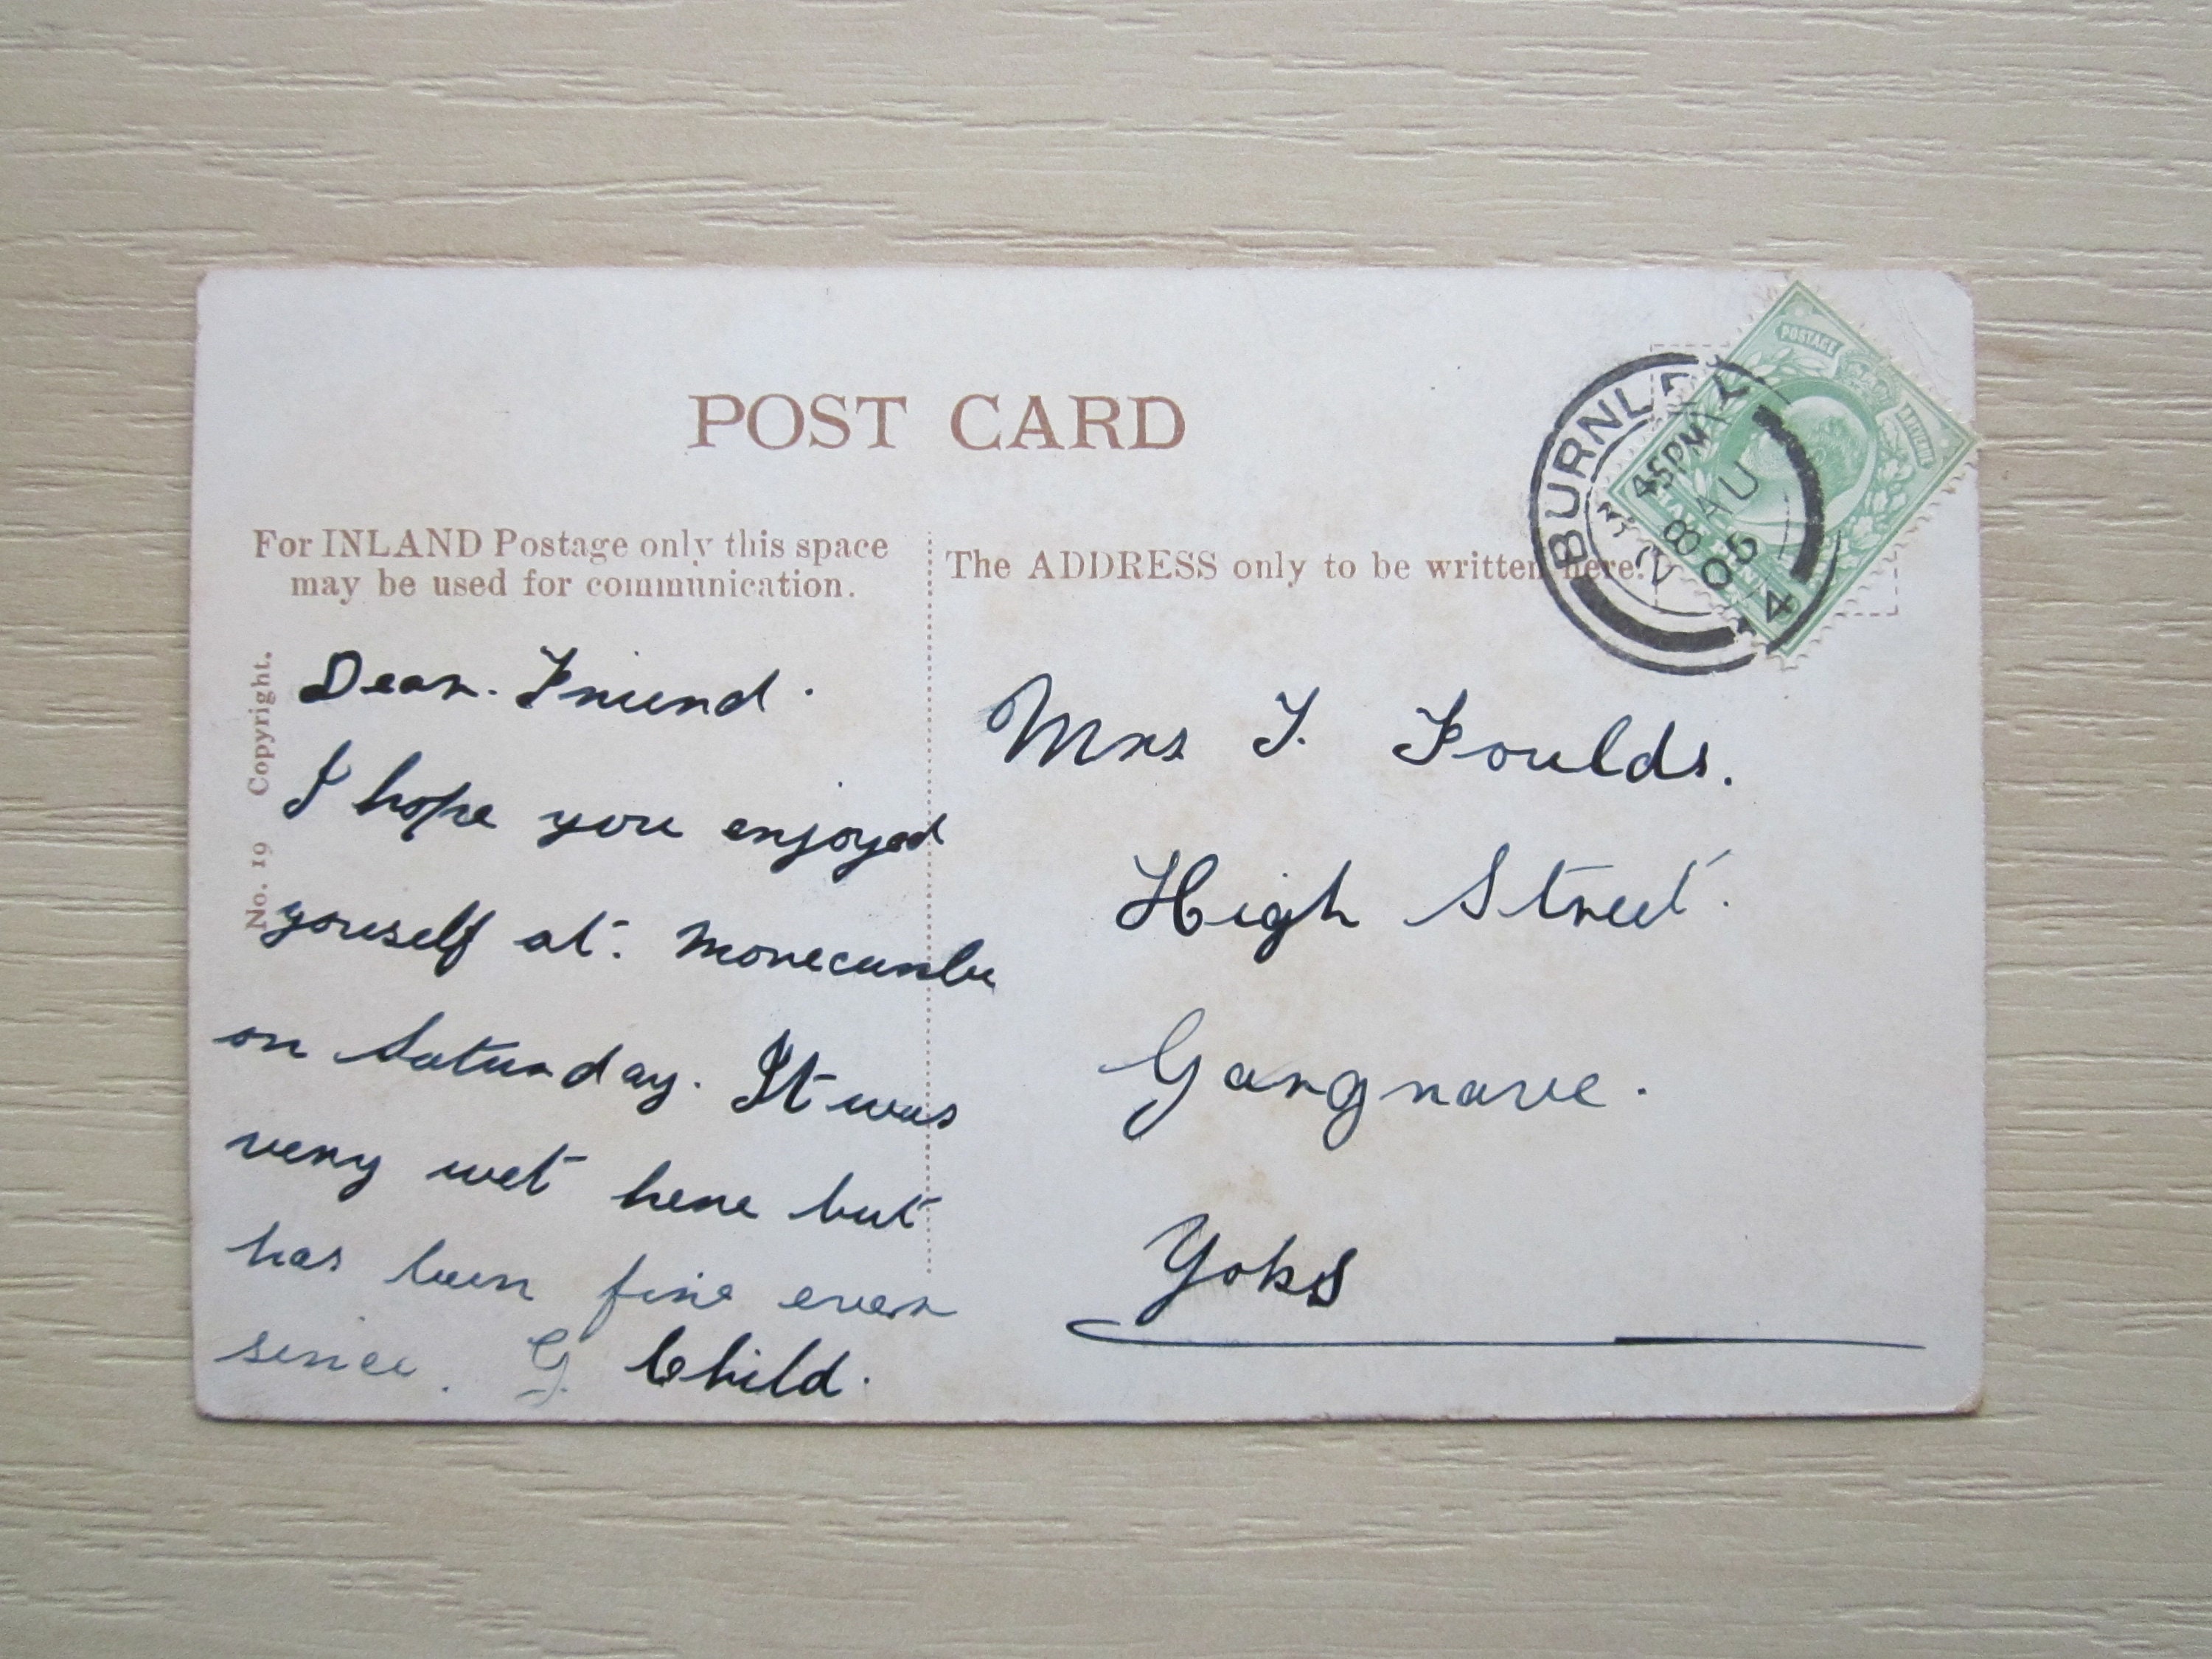 POST CARD
For INLAND Postage only this space
may be used for communication.
The ADDRESS only to be written here.
No. 19 Copyright.
POSTAGE
BURNLEY
45PM
8 AU
06
4
Dear. Friend.
I hope you enjoyed
yourself at. Morecambe
on Saturday. It was
very wet here but
has been fine ever
since. G. Child.
Mrs J. Foulds.
High Street.
Gargrave.
Yoks